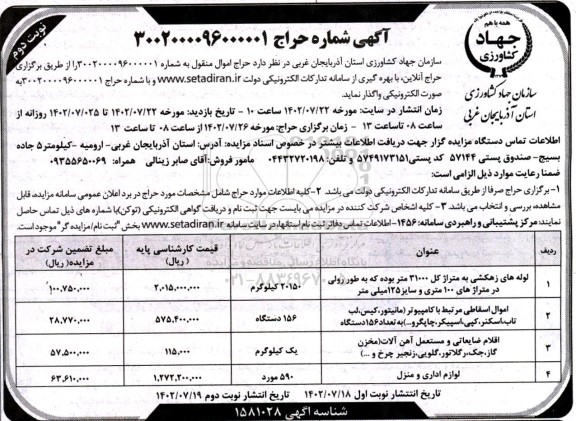 نوبت دوم
آگهی شماره حراج ۳۰۰۲۰۰۰۰۹۶۰۰۰۰۰۱
همه با هم
جهاد
کشاورزی
سازمان جهاد کشاورزی
استان آذربایجان غربی
سازمان جهاد کشاورزی استان آذربایجان غربی در نظر دارد حراج اموال منقول به شماره ۳۰۰۲۰۰۰۰۹۶۰۰۰۰۰۱ را از طریق برگزاری
حراج آنلاین، با بهره گیری از سامانه تدارکات الکترونیکی دولت www.setadiran.ir و با شماره حراج ۳۰۰۲۰۰۰۰۹۶۰۰۰۰۰۱ به
صورت الکترونیکی واگذار نماید.
زمان انتشار در سایت: مورخه ۱۴۰۲/۰۷/۲۲ ساعت ۱۰ - تاریخ بازدید: مورخه ۱۴۰۲/۰۷/۲۲ تا ۱۴۰۲/۰۷/۰۲۵ روزانه از
ساعت ۰۸ تا ساعت ۱۳ - زمان برگزاری حراج: مورخه ۱۴۰۲/۰۷/۲۶ از ساعت ۰۸ تا ساعت ۱۳
اطلاعات تماس دستگاه مزایده گزار جهت دریافت اطلاعات بیشتر در خصوص اسناد مزایده: آدرس: استان آذربایجان غربی- ارومیه -کیلومتر۵ جاده
بسیج- صندوق پستی ۵۷۱۴۴ کد پستی ۵۷۴۹۱۷۳۱۵۱ و تلفن: ۰۴۴۳۲۷۲۰۱۹۸ مامور فروش: آقای صابر زینالی همراه: ۰۹۳۵۵۶۵۰۰۶۹
ضمنا رعایت موارد ذیل الزامی است:
۱- برگزاری حراج صرفا از طریق سامانه تدارکات الکترونیکی دولت می باشد. ۲-کلیه اطلاعات موارد حراج شامل مشخصات مورد حراج در برد اعلان عمومی سامانه مزایده، قابل
مشاهده، بررسی و انتخاب می باشد. ۳- کلیه اشخاص شرکت کننده در مزایده می بایست جهت ثبت نام و دریافت گواهی الکترونیکی (توکن)با شماره های ذیل تماس حاصل
نمایند: مرکز پشتیبانی و راهبردی سامانه: ۱۴۵۶- اطلاعات تماس دفاتر ثبت نام استانها، در سایت سامانه www.setadiran.ir بخش "ثبت نام/مزایده گر" موجود است.
ردیف عنوان قیمت کارشناسی پایه ( ریال) مبلغ تضمین شرکت در مزایده( ریال)
۱ لوله های زهکشی به متراژ کل ۳۱۰۰۰ متر بوده که به طور رولی در متراژ های ۱۰۰ متری و سایز۱۲۵میلی متر ۲۰۱۵۰ کیلوگرم ۲,۰۱۵,۰۰۰,۰۰۰ ۱۰۰,۷۵۰,۰۰۰
۲ اموال اسقاطی مرتبط با کامپیوتر (مانیتور،کیس،لپ تاپ،اسکنر،کپی،اسپیکر،چاپگرو...)به تعداد۱۵۶دستگاه ۱۵۶ دستگاه ۵۷۵,۴۰۰,۰۰۰ ۲۸,۷۷۰,۰۰۰
۳ اقلام ضایعاتی و مستعمل آهن آلات(مخزن گاز،جک،رگلاتور،گلویی،زنجیر چرخ و ...) یک کیلوگرم ۱۱۵,۰۰۰ ۵۷,۵۰۰,۰۰۰
۴ لوازم اداری و منزل ۵۹۰ مورد ۱,۲۷۲,۲۰۰,۰۰۰ ۶۳,۶۱۰,۰۰۰
تاریخ انتشار نوبت اول ۱۴۰۲/۰۷/۱۸ تاریخ انتشار نوبت دوم ۱۴۰۲/۰۷/۱۹
شناسه آگهی ۱۵۸۱۰۲۸